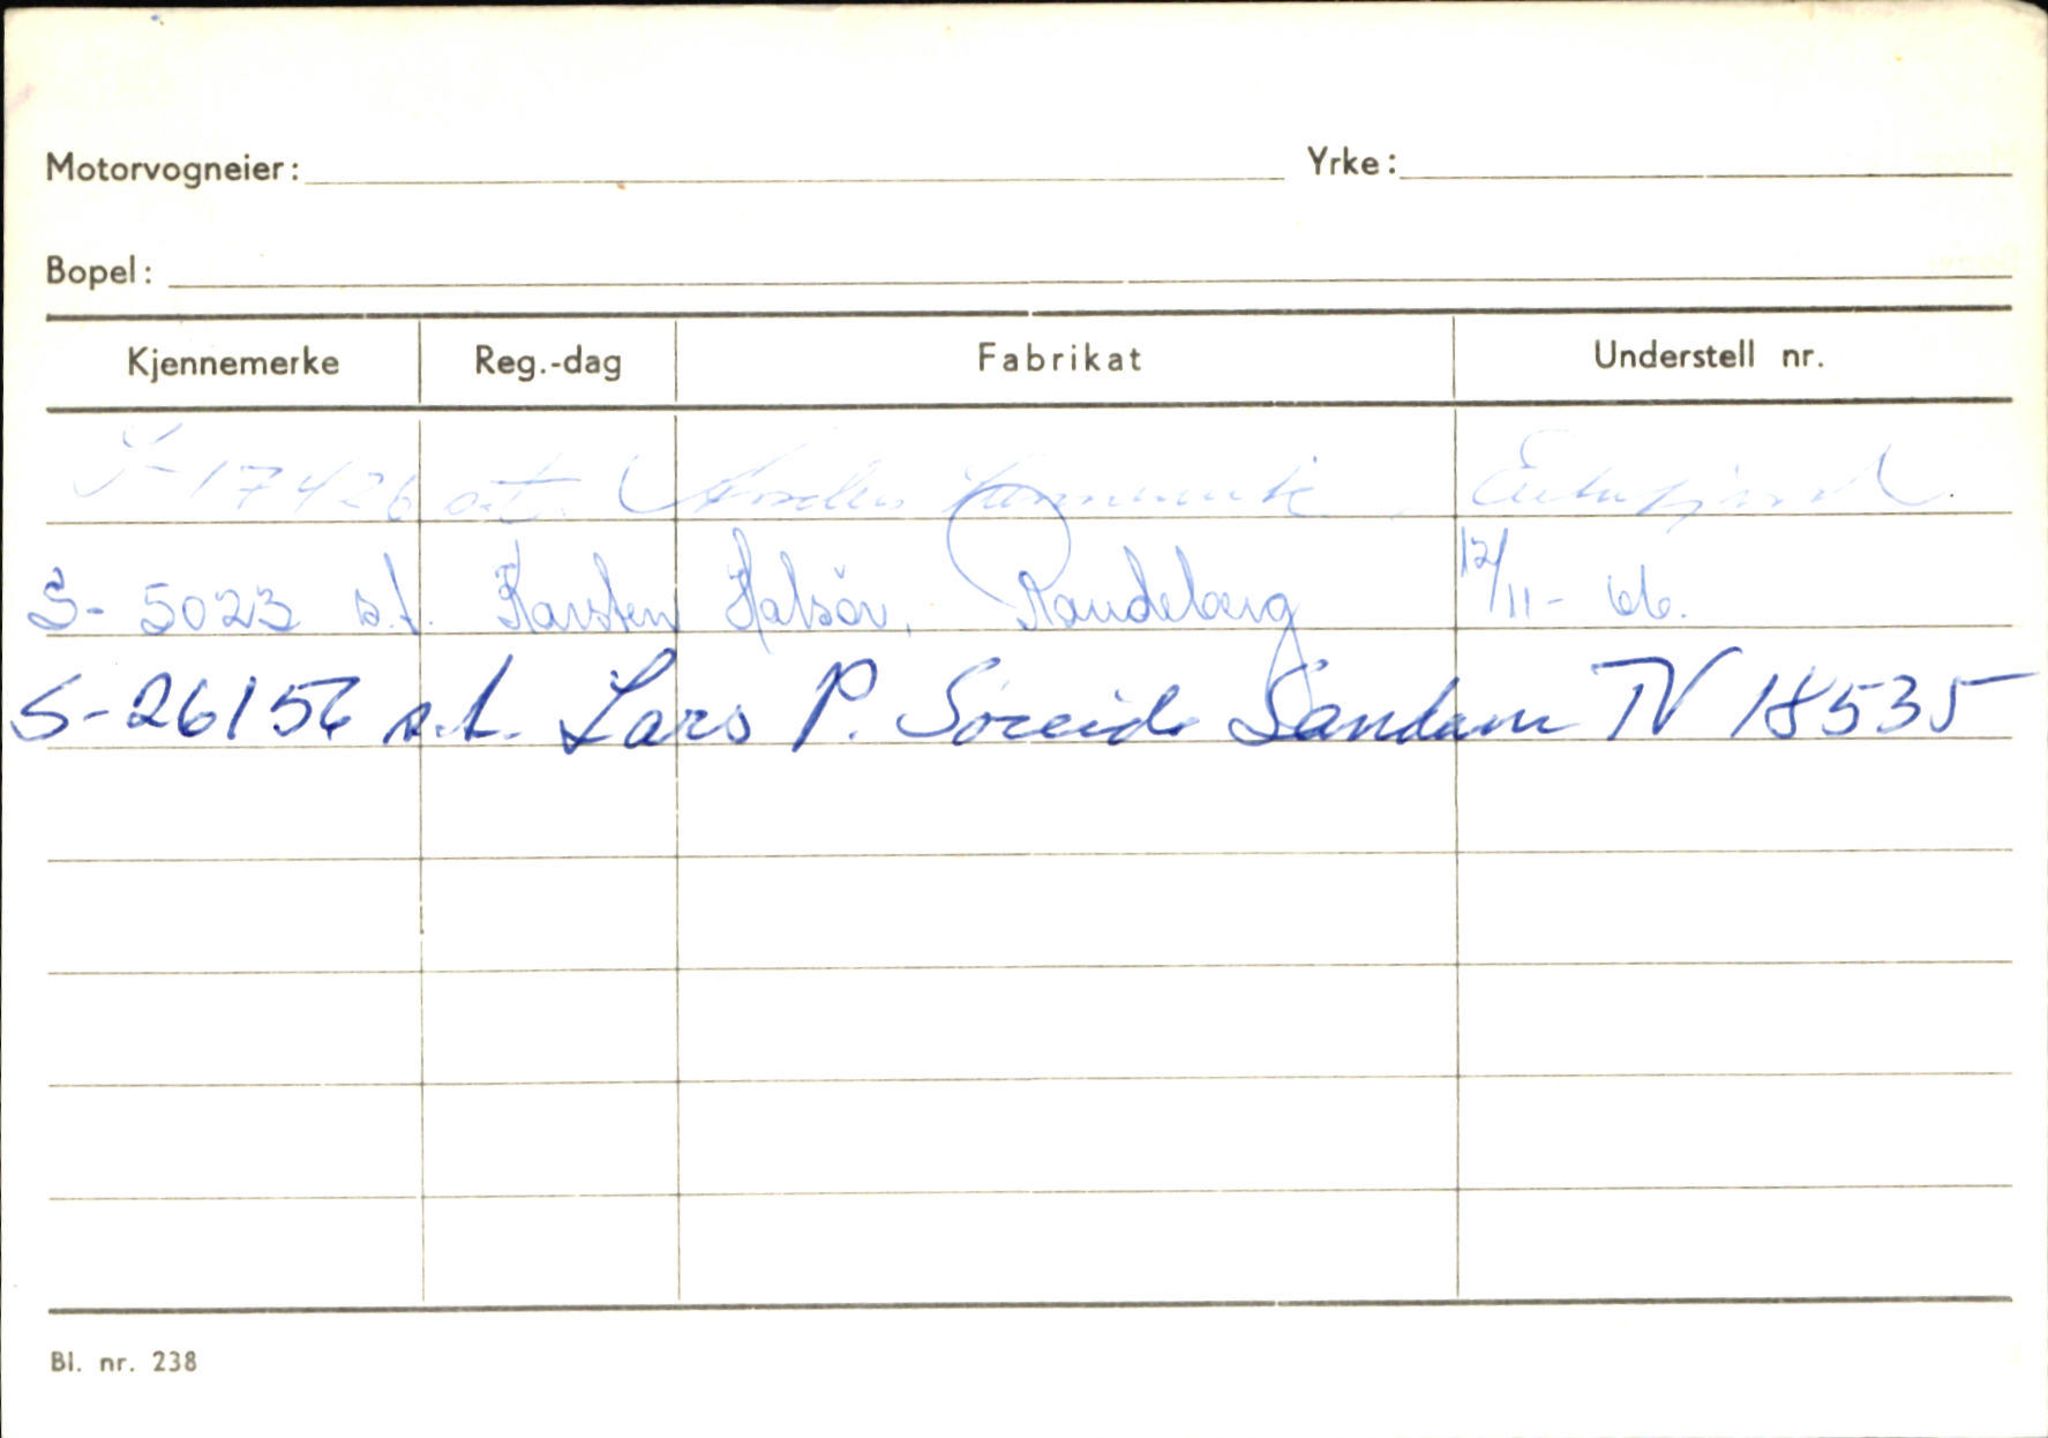 Motorvogneier: Yrke:
Bopel:
Kjennemerke Reg.-dag Fabrikat Understell nr.
S-17426 o.t.
S- 5023 s.t. Karsten Halsör, Raudeberg 12/11- 66.
S-26156 s.t. Lars P. Söreide Sandane TV 18535
Bl. nr. 238